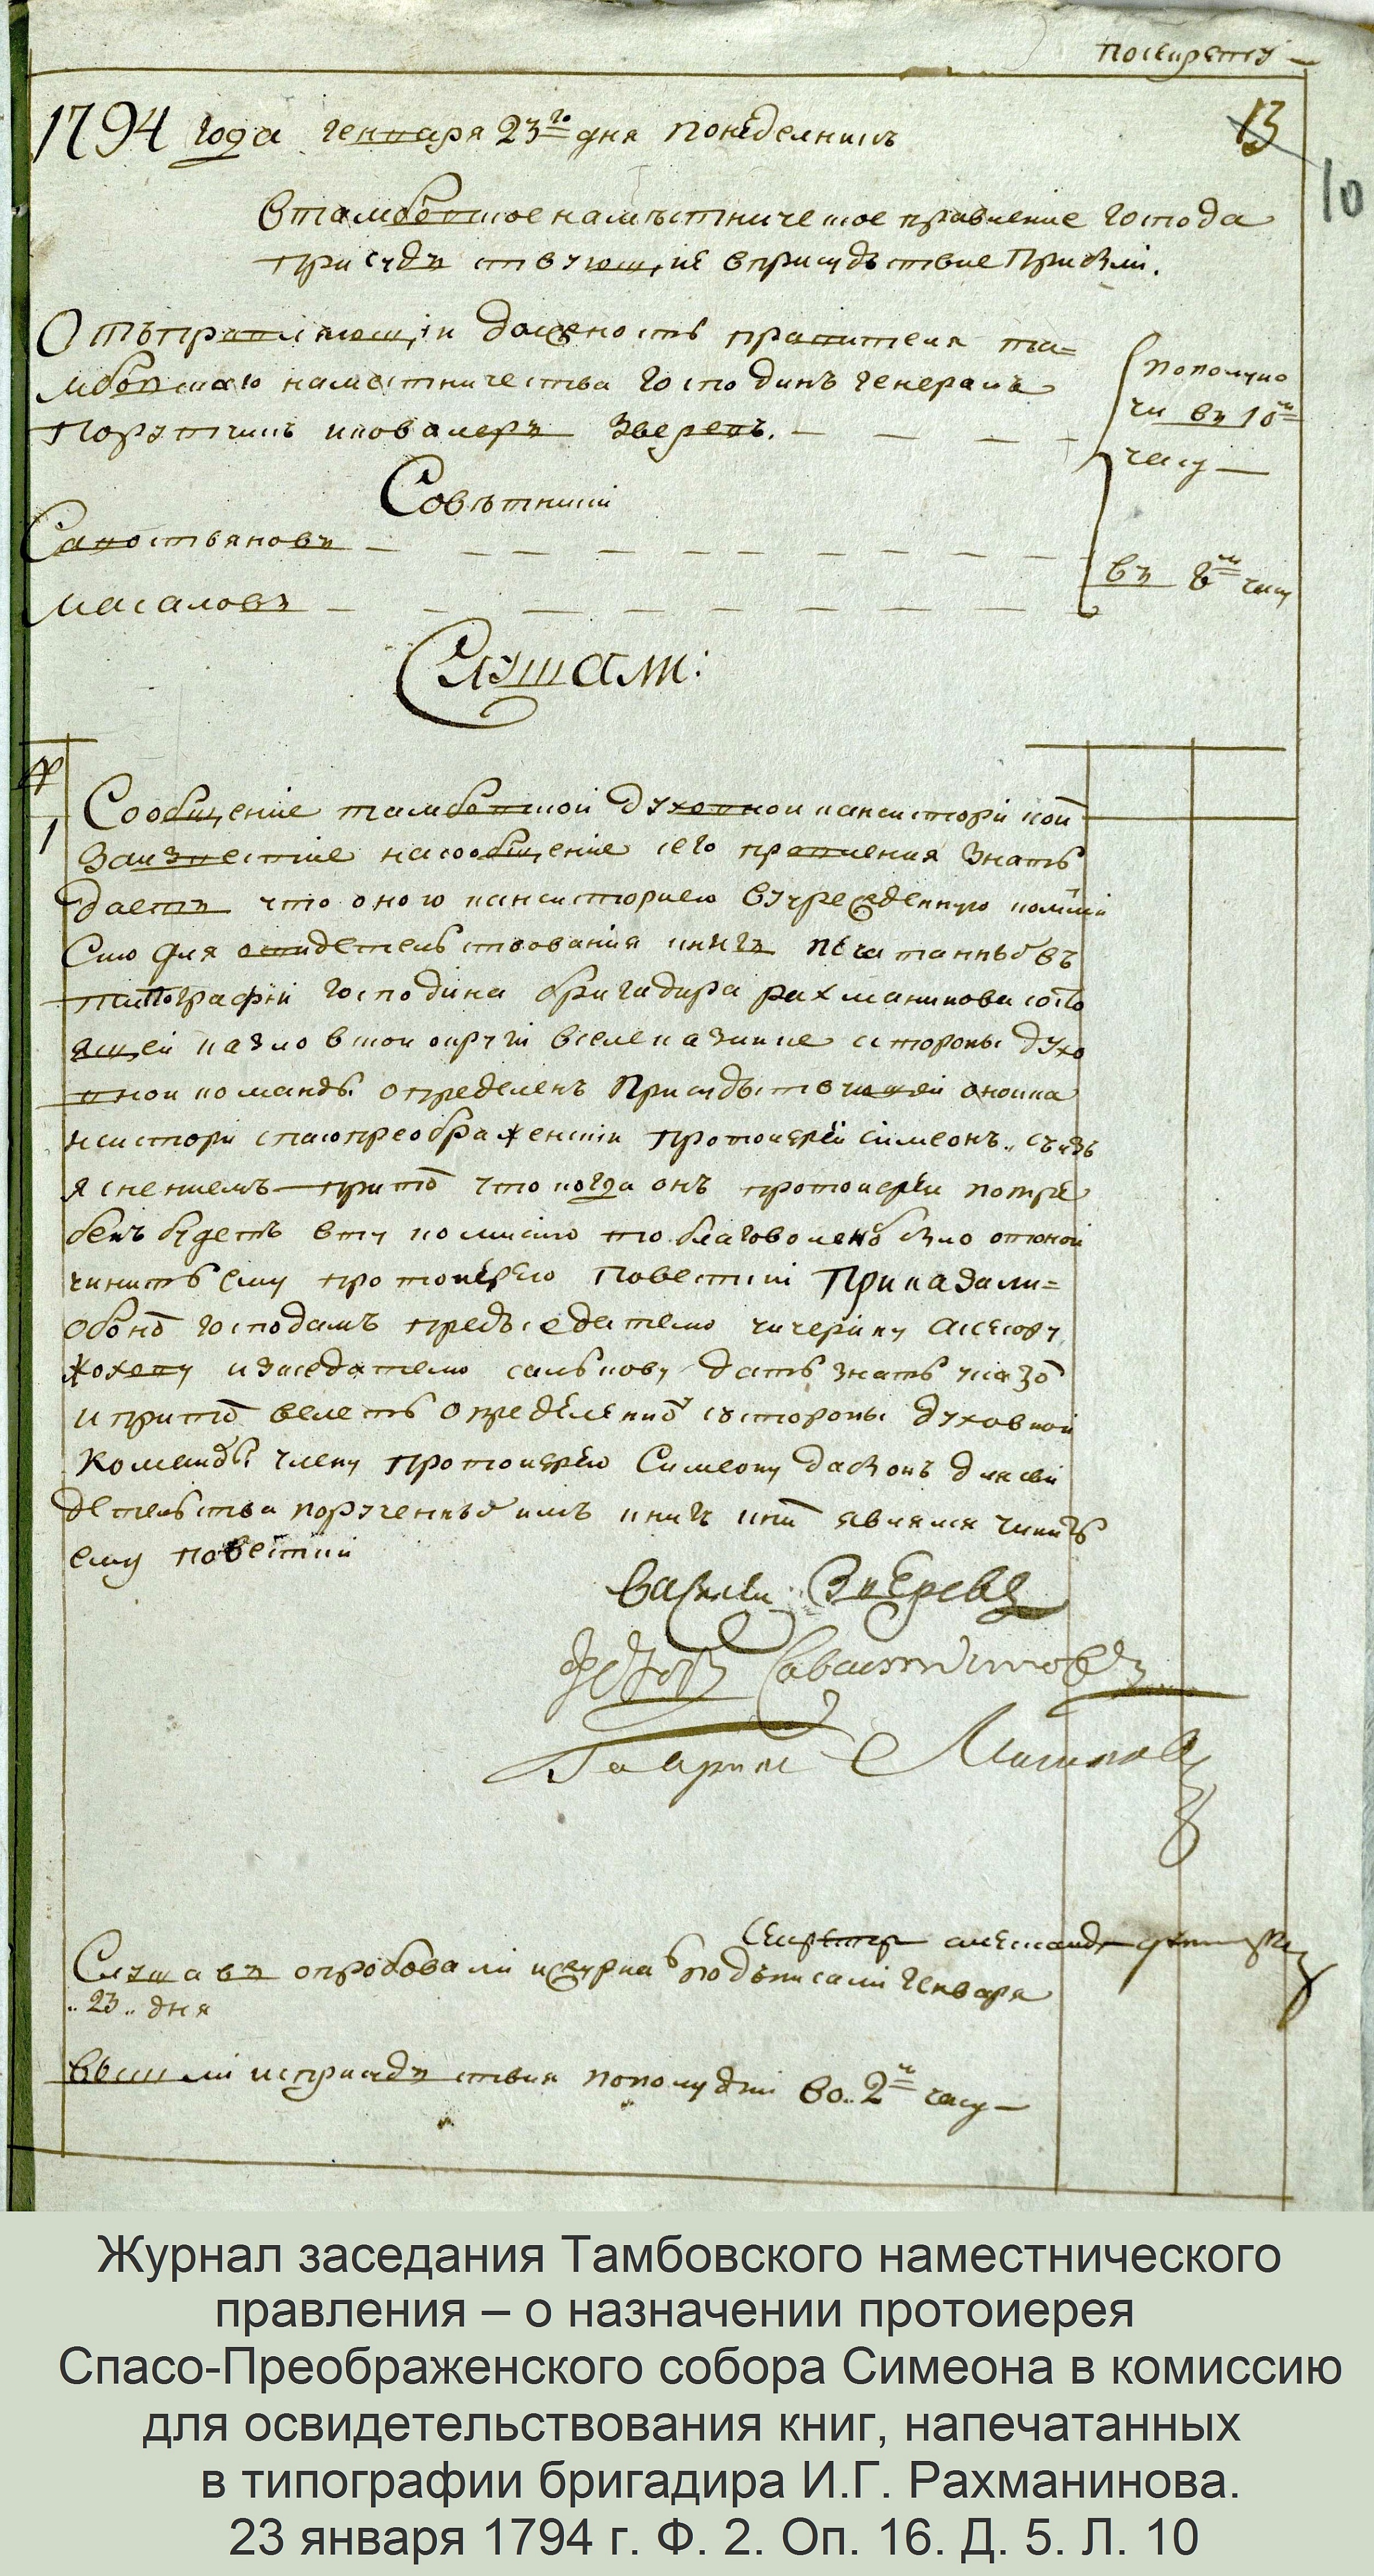 посекрету
1794 года генваря 23го дня понеделникъ
13
10
Втамбовское наместническое правление господа
присудъствующие вприсудьствие Прибыли.
Отъправляющии должность правителя та=
мбовскаго наместничества господинъ генералъ
Порутчикъ икавалеръ Зверевъ.
пополуно
чи въ 10м
часу
Советники
Савостьяновъ
Масаловъ
въ 8м часу
Слушали:
№
1
Сообщение тамбовской духовной кансистории коим
Заизвестие насообщение сего правления знать
даетъ что оною кансисториею вучрежденную комми
Сию для освидетельствования книгъ печатанныхъ въ
типографии господина бригадира рахманинова состо
ящей казловской округи вселе казинке стороны духо
вной команды определенъ Присудьствующей оной ка
нсистории спасопреображенский протоиерей Симеонъ. Съизъ
яснениемъ притом что когда онъ протоиерей потре
бенъ будетъ вту комисию то благоволено было отоной
чинить ему протоиерею Повестки Приказали=
Обоном господамъ предьседателю чичерину асесору
Хохеву изаседателю салькову дать знать указом
ипритом велеть определенному состороны духовной
команды члену протоиерею Симеону дабы онъ длясви
детельства порученныхъ имъ книгъ кним являлся чинить
ему повестки
Василей Зверевъ
Федоръ Савостьяновъ
Гаврила Масаловъ
Секретарь александръ
Слушавъ опробовали ижурналъ подъписали Генваря
„23„ дня
Вышли исприсудъствия пополудни во„2м часу
Журнал заседания Тамбовского наместнического
правления – о назначении протоиерея
Спасо-Преображенского собора Симеона в комиссию
для освидетельствования книг, напечатанных
в типографии бригадира И.Г. Рахманинова.
23 января 1794 г. Ф. 2. Оп. 16. Д. 5. Л. 10